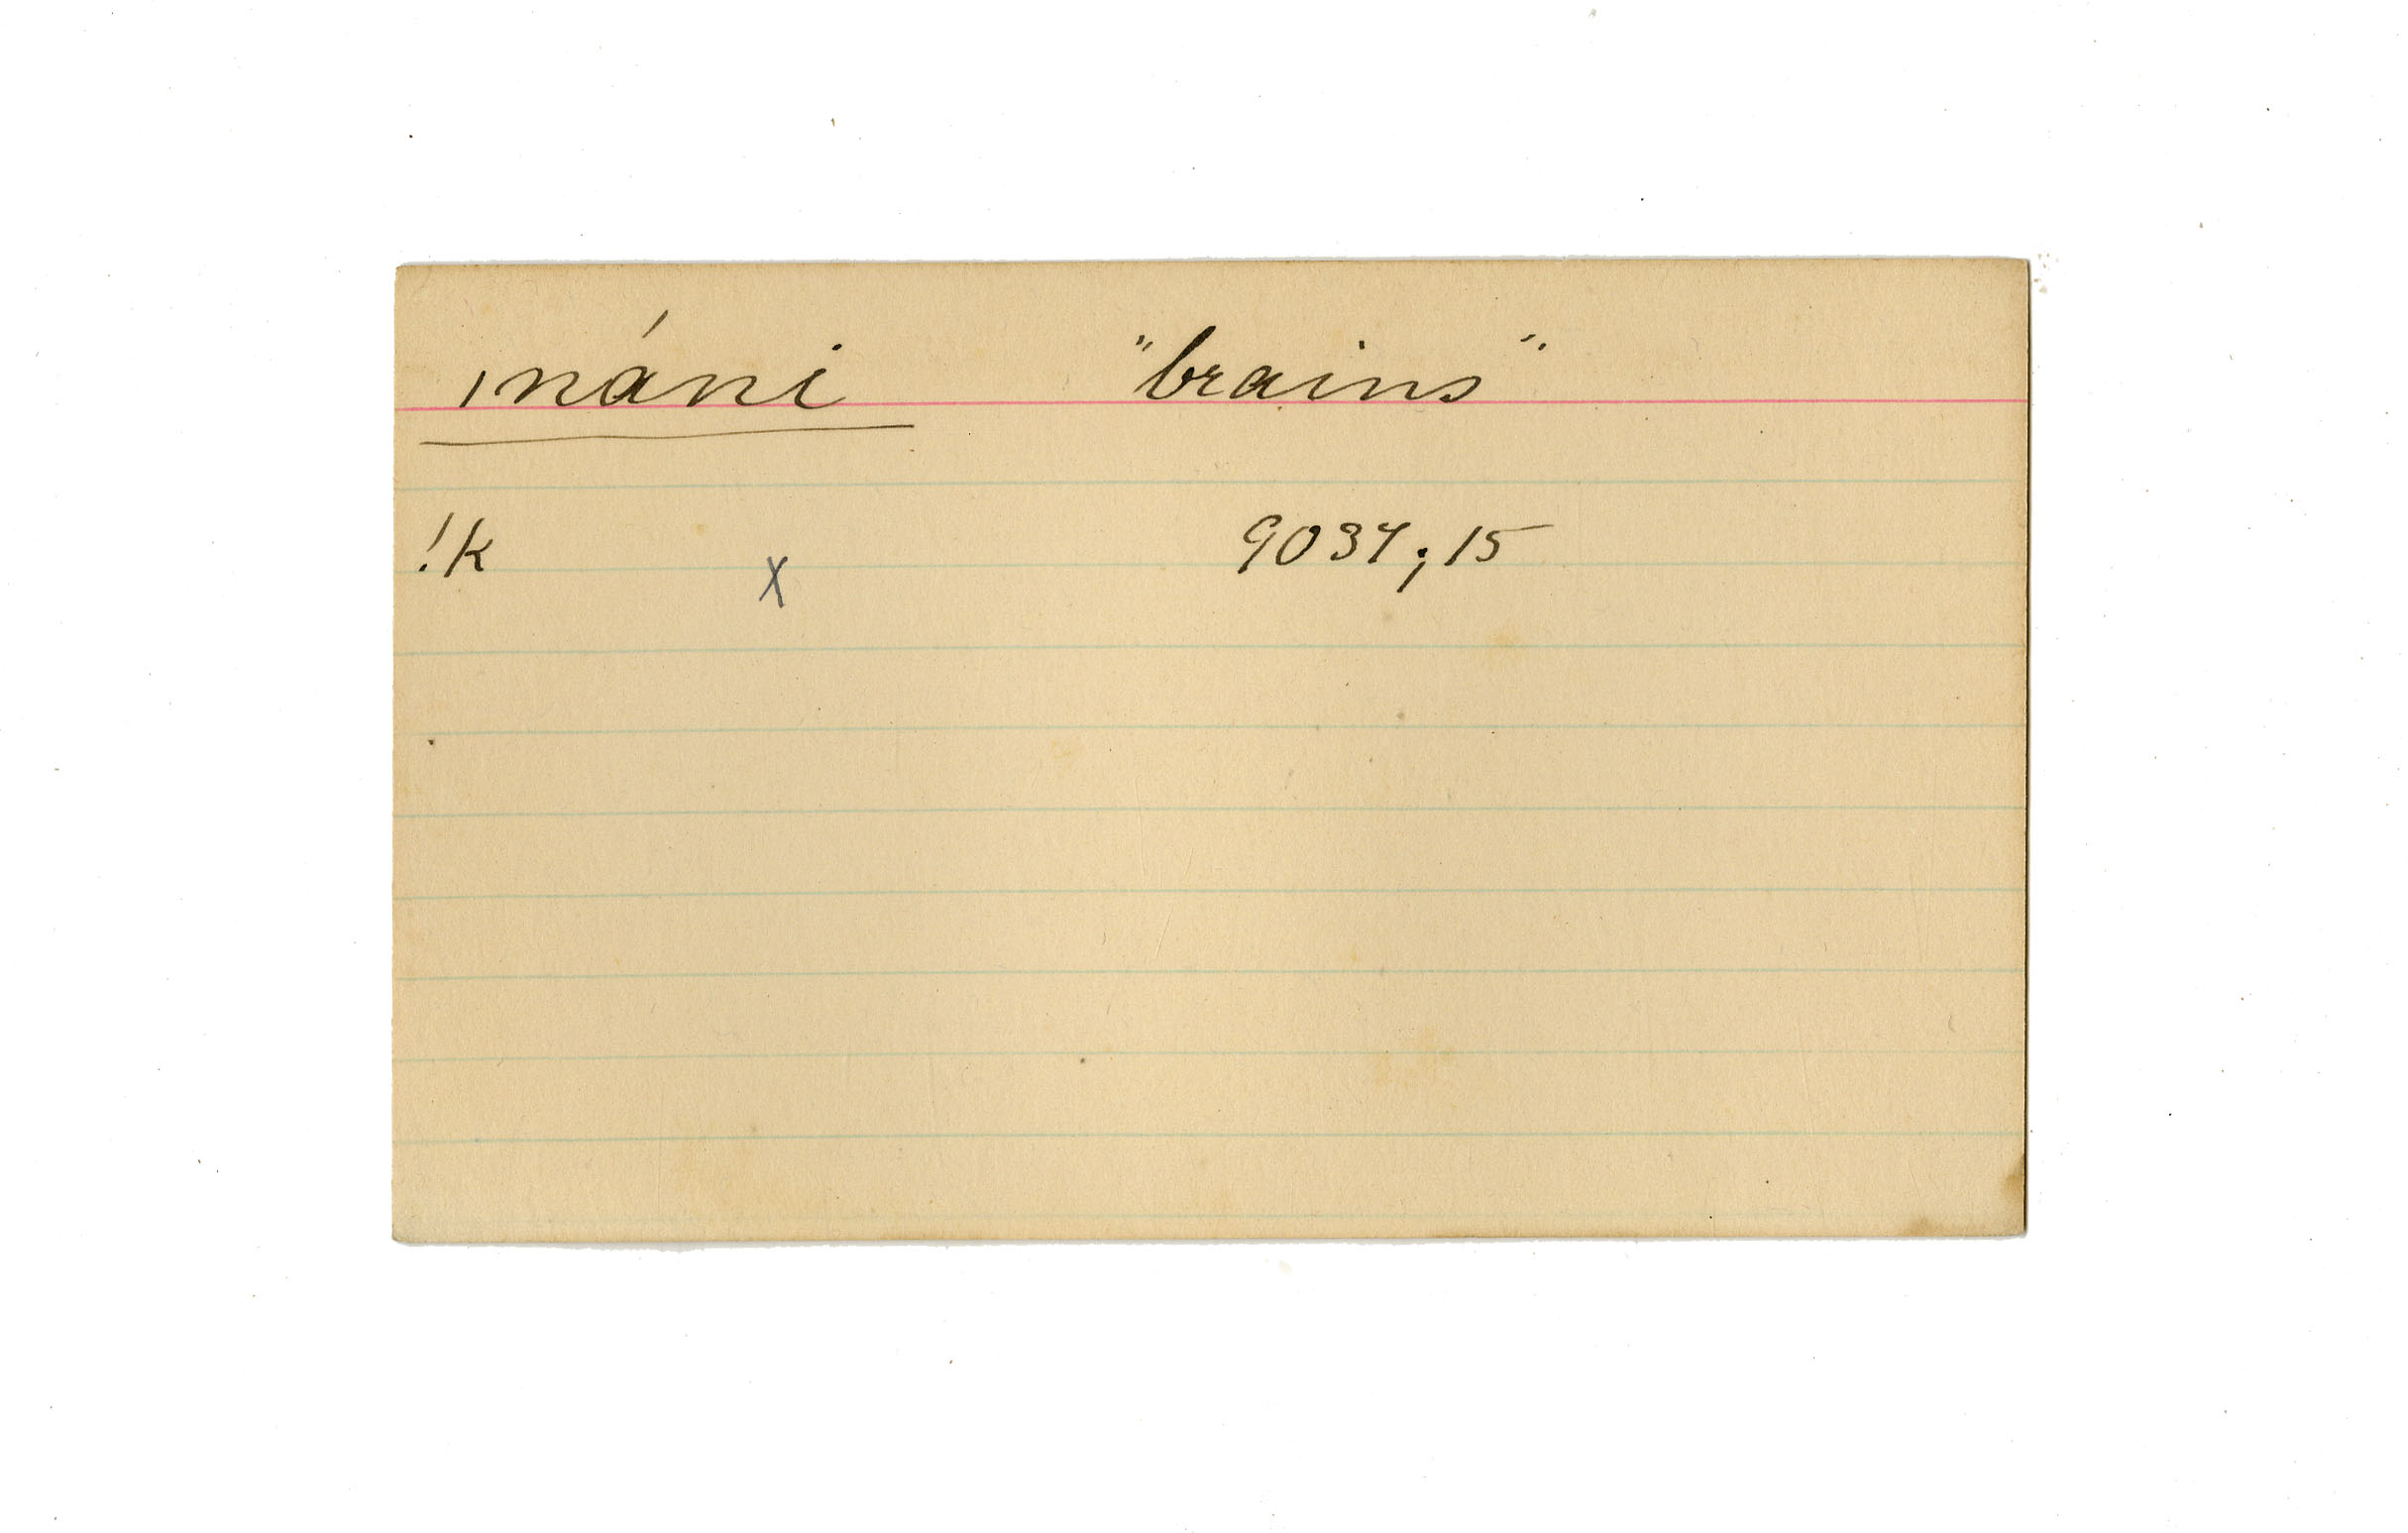 ınánı "brains"
!k x 9037; 15